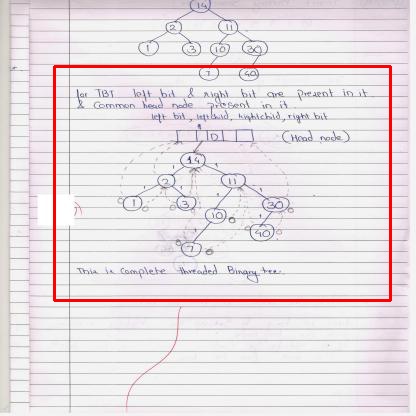 14
2 11
1 3 10 30
7 40
for TBT left bit & right bit are present in it
& Common head node present in it.
left bit, leftchid, rightchid, right bit
D (Head node)
14
2 11
1 3 10 30
7 40
This is Complete threaded Binary tree.